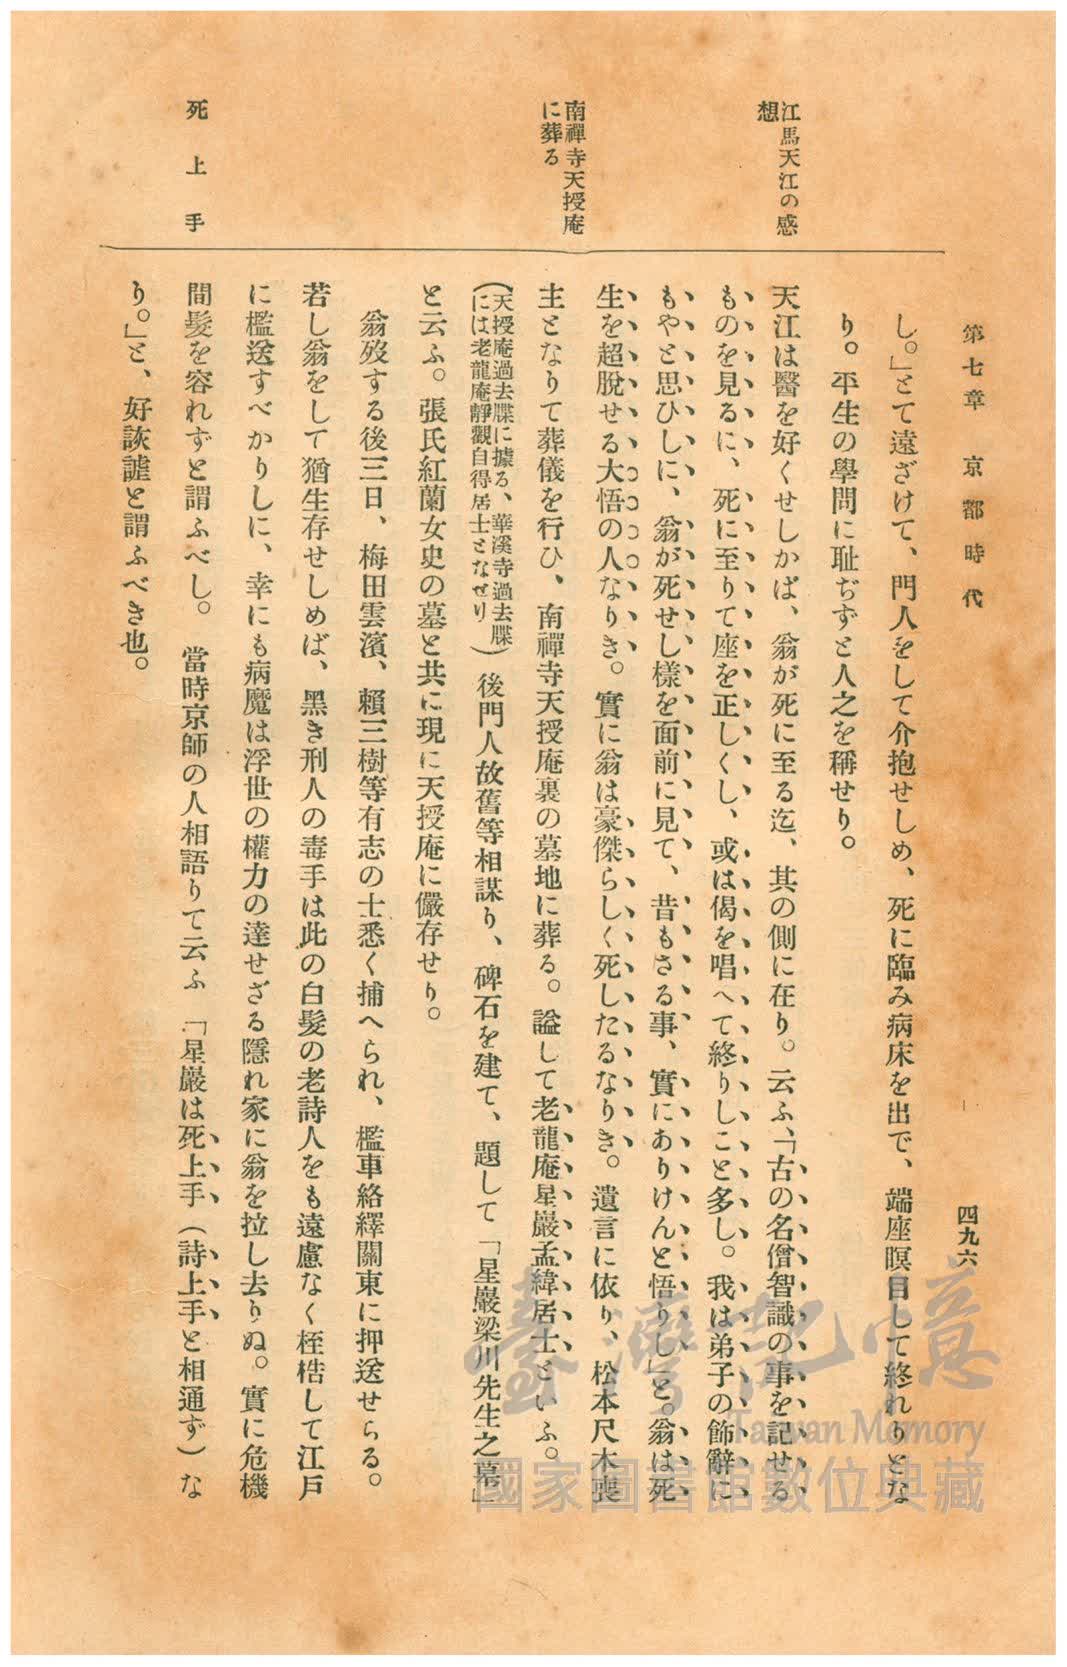 第七章 京都時代
四九六
江馬天江の感
想
南禪寺天授庵
に葬る
死上手
し。」とて遠ざけて、門人をして介抱せしめ、死に臨み病床を出で、端座瞑目して終れりとな
り。平生の學問に耻ぢずと人之を稱せり。
天江は醫を好くせしかば、翁が死に至る迄、其の側に在り。云ふ、「古の名僧智識の事を記せる
ものを見るに、死に至りて座を正しくし、或は偈を唱へて終りしこと多し。我は弟子の飾辭に
もやと思ひしに、翁が死せし樣を面前に見て、昔もさる事、實にありけんと悟りし」と。翁は死
生を超脱せる大悟の人なりき。實に翁は豪傑らしく死したるなりき。遺言に依り、松本尺木喪
主となりて葬儀を行ひ、南禪寺天授庵裏の墓地に葬る。謚して老龍庵星巖孟緯居士といふ。
(天授庵過去牒に據る、華溪寺過去牒
には老龍庵靜觀自得居士となせり)後門人故舊等相謀り、碑石を建て、題して「星巖梁川先生之墓」
と云ふ。張氏紅蘭女史の墓と共に現に天授庵に儼存せり。
翁歿する後三日、梅田雲濱、賴三樹等有志の士悉く捕へられ、檻車絡繹關東に押送せらる。
若し翁をして猶生存せしめば、黑き刑人の毒手は此の白髮の老詩人をも遠慮なく桎梏して江戸
に檻送すべかりしに、幸にも病魔は浮世の權力の達せざる隱れ家に翁を拉し去りぬ。實に危機
間髮を容れずと謂ふべし。當時京師の人相語りて云ふ「星巖は死上手(詩上手と相通ず)な
り。」と、好詼謔と謂ふべき也。
臺灣記憶
Taiwan Memory
國家圖書館數位典藏